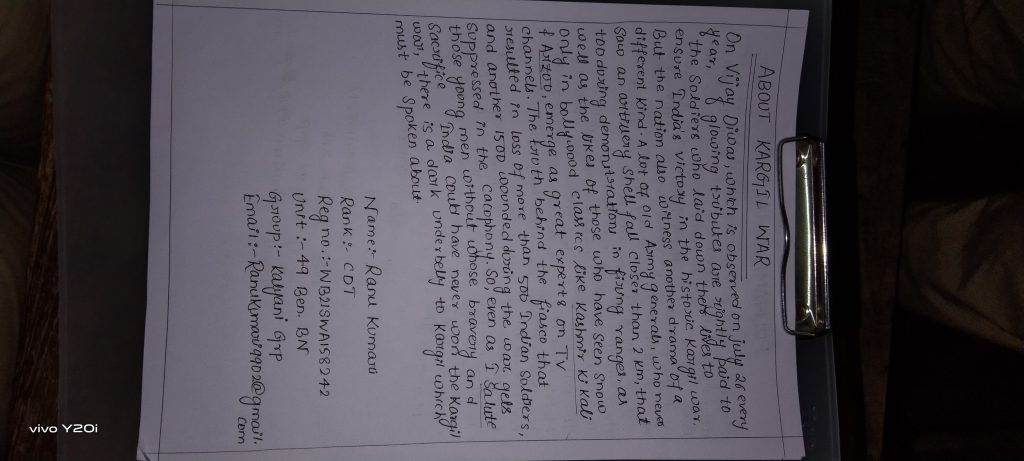 ABOUT KARGIL WAR
On Vijay Diwas which is observed on july 26 every
year, glowing tributes are rightly paid to
the Soldiers who laid down their lives to
ensure India's victory in the historic Kargil war.
But the nation also witness another drama of a
different kind. A lot of old Army generals, who never
saw an artillery shell fall closer than 2 km, that
too during demonstrations in firing ranges, as
well as the likes of those who have seen snow
only in bollywood classics like Kashmir Ki Kali
& Arzoo, emerge as great experts on TV
channels. The truth behind the fiasco that
resulted in loss of more than 500 Indian Soldiers,
and another 1500 wounded during the war gets
suppressed in the cacophony. So, even as I Salute
those young men without whose bravery and
Sacrifice India could have never won the Kargil
war, there is a dark underbelly to Kargil which
must be spoken about
Name:- Ranu Kumari
Rank :- CDT
Reg no.:- WB21SWA158242
Unit :- 49 Ben. BN
Group :- Kalyani Grp
Email :- Ranukumari9902@gmail.
com
vivo Y20i